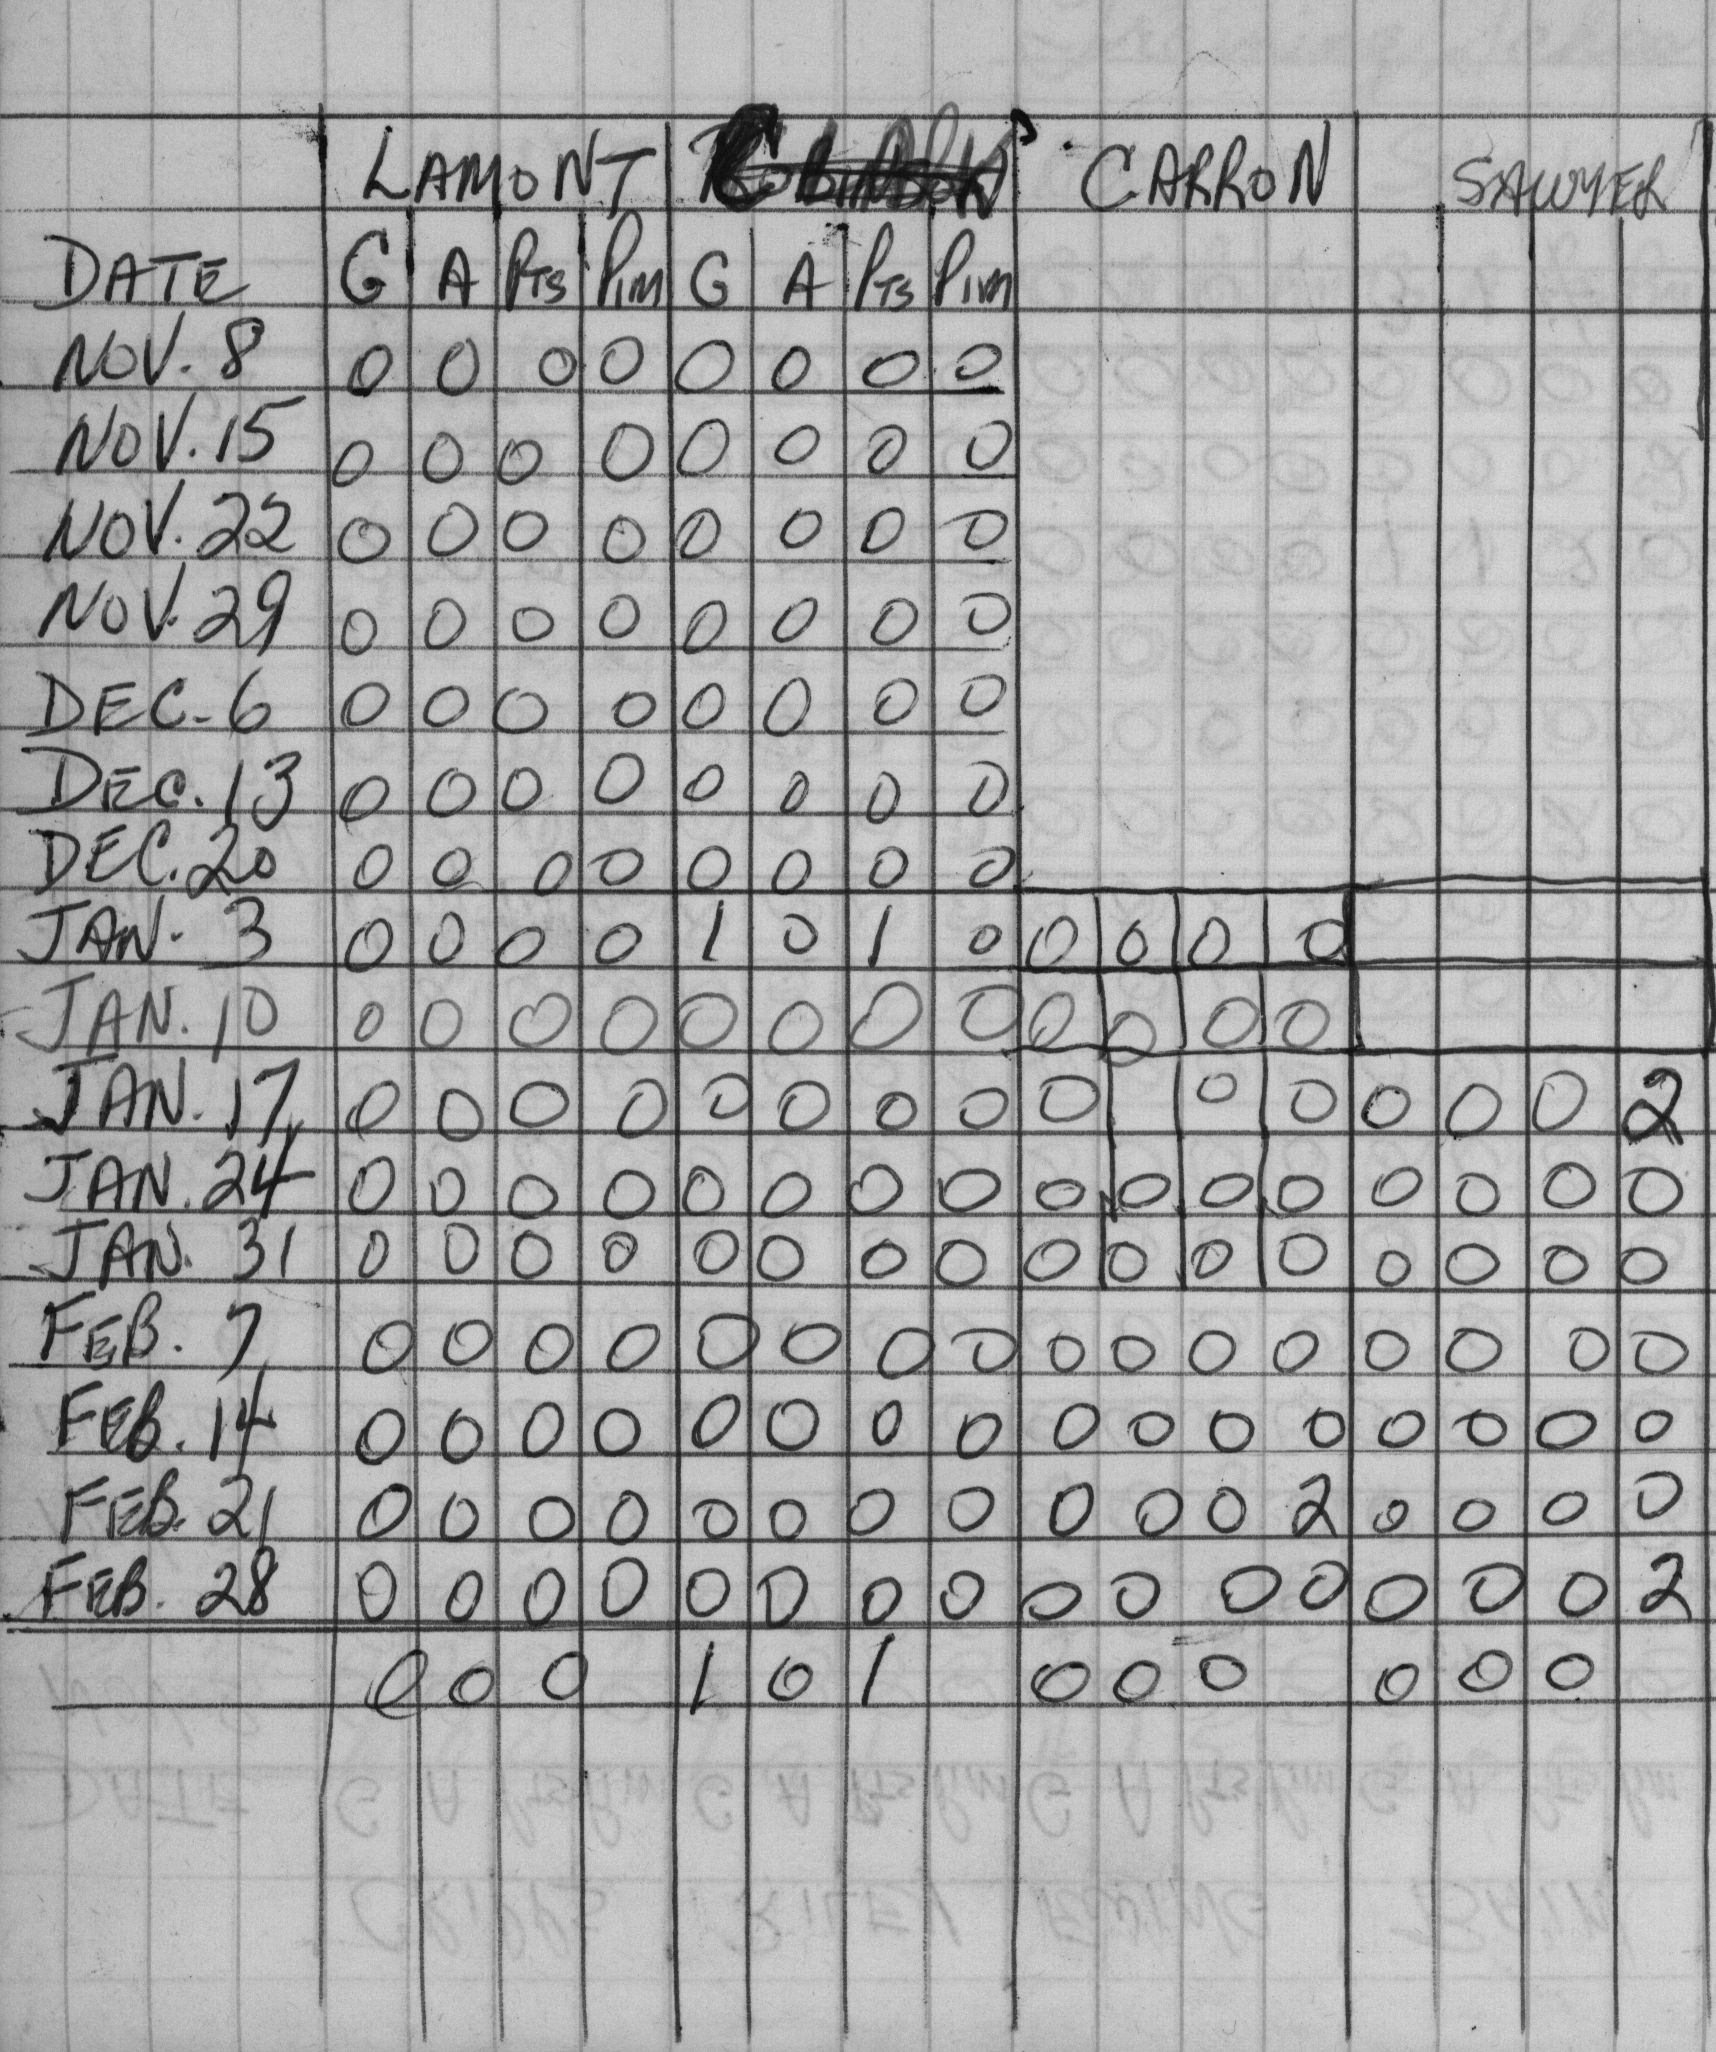 LAMONT CARRON SAWYER
DATE G A PTS PIM G A PTS PIM
NOV. 8 0 0 0 0 0 0 0 0
NOV. 15 0 0 0 0 0 0 0 0
NOV. 22 0 0 0 0 0 0 0 0
NOV. 29 0 0 0 0 0 0 0 0
DEC. 6 0 0 0 0 0 0 0 0
DEC. 13 0 0 0 0 0 0 0 0
DEC. 20 0 0 0 0 0 0 0 0
JAN. 3 0 0 0 0 1 0 1 0 0 0 0 0
JAN. 10 0 0 0 0 0 0 0 0 0 0 0 0
JAN. 17 0 0 0 0 0 0 0 0 0 0 0 0 0 0 2
JAN. 24 0 0 0 0 0 0 0 0 0 0 0 0 0 0 0 0
JAN. 31 0 0 0 0 0 0 0 0 0 0 0 0 0 0 0 0
FEB. 7 0 0 0 0 0 0 0 0 0 0 0 0 0 0 0 0
FEB. 14 0 0 0 0 0 0 0 0 0 0 0 0 0 0 0 0
FEB. 21 0 0 0 0 0 0 0 0 0 0 0 2 0 0 0 0
FEB. 28 0 0 0 0 0 0 0 0 0 0 0 0 0 0 0 2
0 0 0 1 0 1 0 0 0 0 0 0